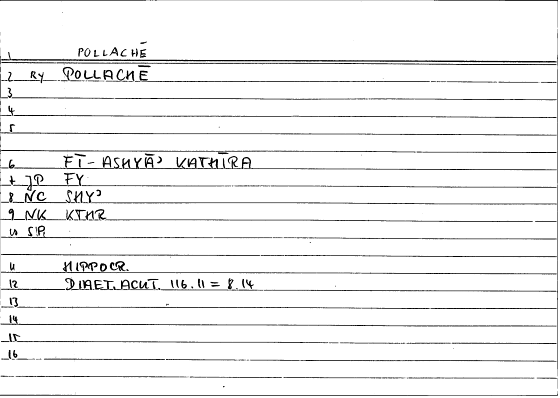 1 POLLACHĒ
2 RY POLLACHĒ
3
4
5
6 FĪ-ASHYĀʾ KATHĪRA
7 JP FY
8 NC SHYʾ
9 NK KTHR
10 SP,
11 HIPPOCR.
12 DIAET. ACUT. 116.11 = 8.14
13
14
15
16